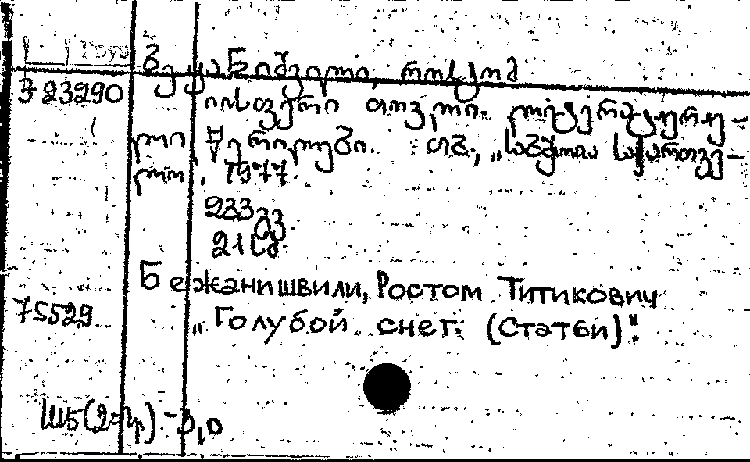 ბეჟანიშვილი, როსტომ
3 23290
იისფერი თოვლი. ლიტერატურუ-
ლი წერილები. თბ., „საბჭოთა საქართვე-
ლო", 1977.
233 გვ.
21 სმ.
Бежанишвили, Ростом Титикович
75529
„Голубой снег (Статьи)".